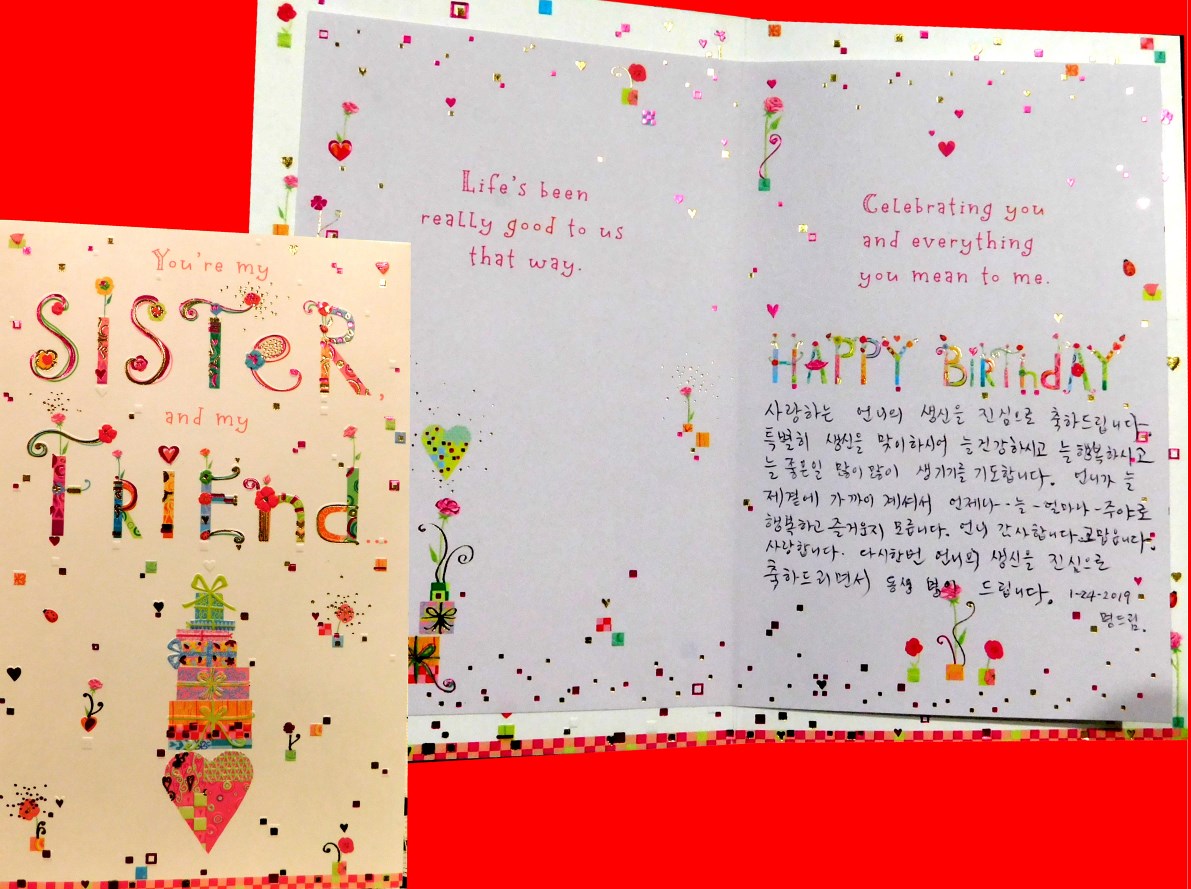 You're my
SISTER,
and my
FRIEnd...
Life's been
really good to us
that way.
Celebrating you
and everything
you mean to me.
HAPPY BIRThdAY
사랑하는 언니의 생신을 진심으로 축하드립니다.
특별히 생신을 맞이하시어 늘 건강하시고 늘 행복하시고
늘 좋은일 많이 많이 생기기를 기도합니다. 언니가 늘
제곁에 가까이 계셔서 언제나-늘-얼마나-주야로
행복하고 즐거운지 모릅니다. 언니 감사합니다. 고맙습니다.
사랑합니다. 다시한번 언니의 생신을 진심으로
축하드리면서 동생 드립니다. 1-24-2019
명드림.